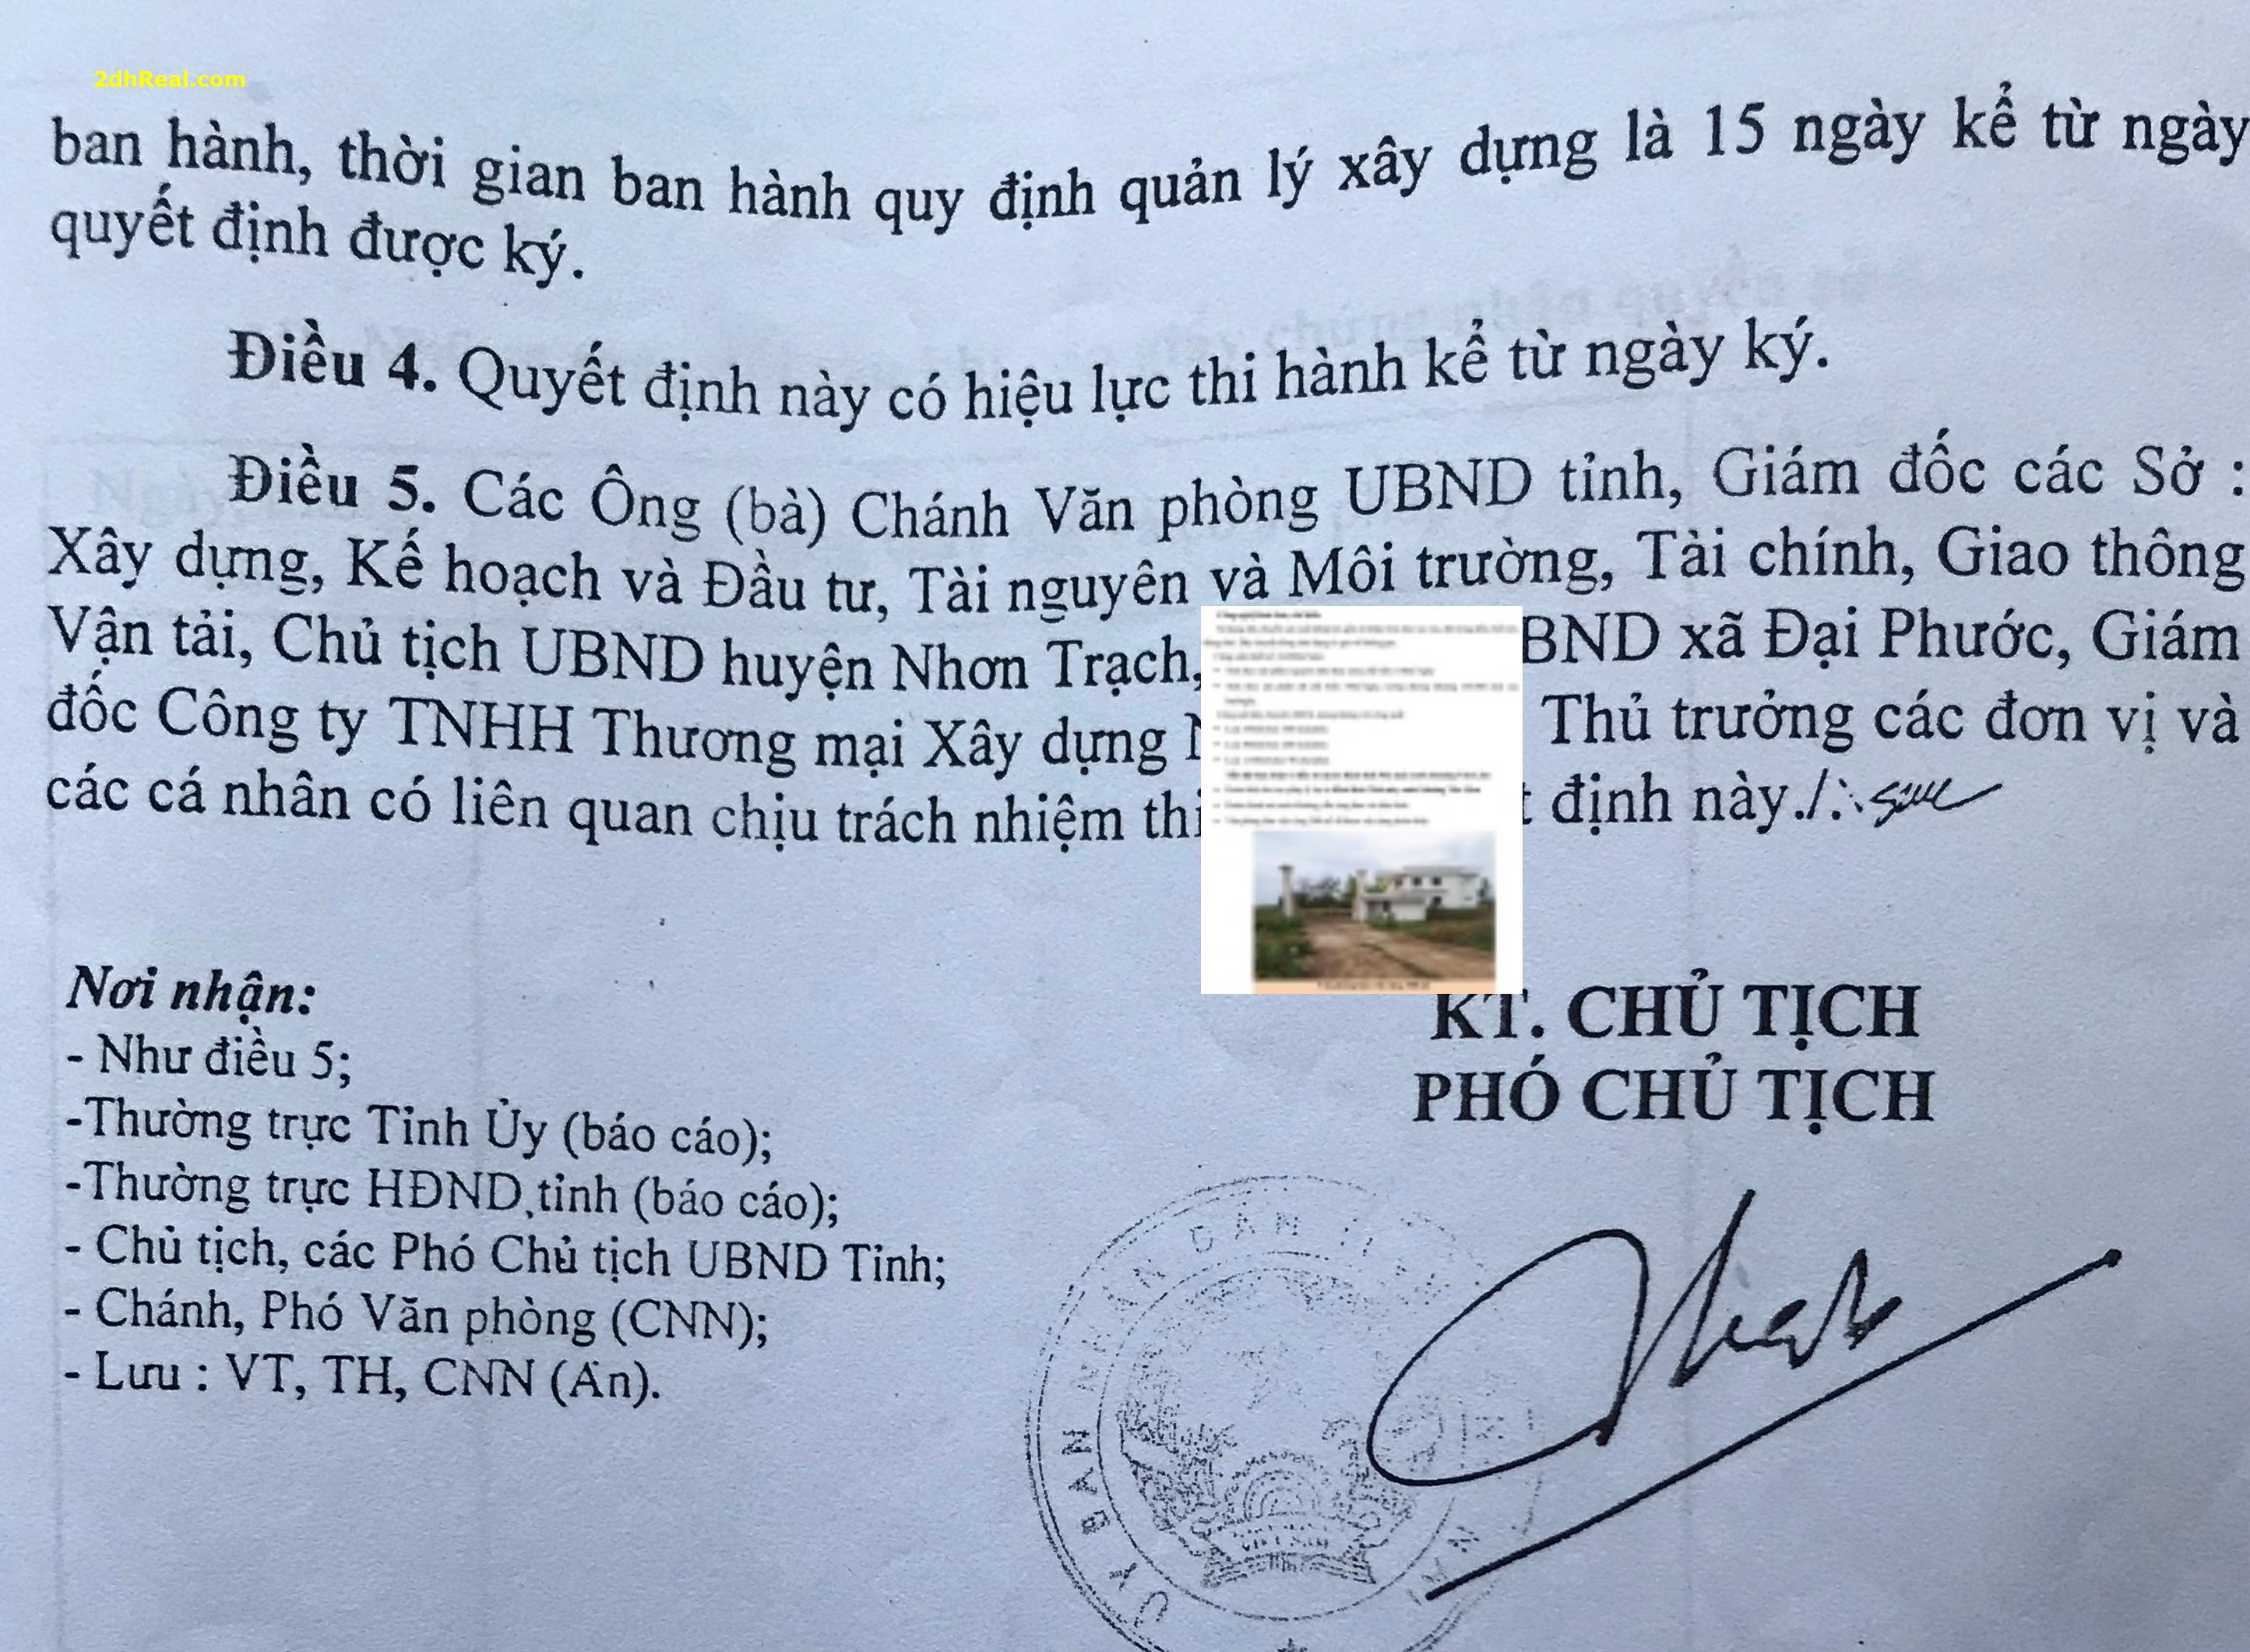 2dhReal.com
ban hành, thời gian ban hành quy định quản lý xây dựng là 15 ngày kể từ ngày
quyết định được ký.
Điều 4. Quyết định này có hiệu lực thi hành kể từ ngày ký.
Điều 5. Các Ông (bà) Chánh Văn phòng UBND tỉnh, Giám đốc các Sở :
Xây dựng, Kế hoạch và Đầu tư, Tài nguyên và Môi trường, Tài chính, Giao thông
Vận tải, Chủ tịch UBND huyện Nhơn Trạch, BND xã Đại Phước, Giám
đốc Công ty TNHH Thương mại Xây dựng Thủ trưởng các đơn vị và
các cá nhân có liên quan chịu trách nhiệm thi định này./.
Nơi nhận:
- Như điều 5;
-Thường trực Tỉnh Ủy (báo cáo);
-Thường trực HĐND tỉnh (báo cáo);
- Chủ tịch, các Phó Chủ tịch UBND Tỉnh;
- Chánh, Phó Văn phòng (CNN);
- Lưu : VT, TH, CNN (Ấn).
KT. CHỦ TỊCH
PHÓ CHỦ TỊCH
ỦY BAN NHÂN DÂN
VIỆT NAM